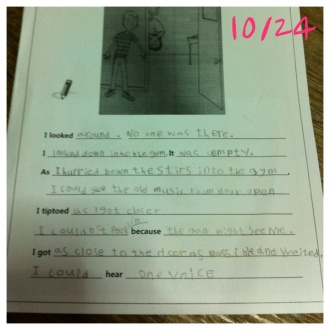 10/24
I looked around. No one was there.
I looked down into the gym. It was empty.
As I hurried down the stirs into the gym,
I could see the old music room door open
I tiptoed as I got closer
in
I couldn't peek because the man might see me.
I got as close to the door as possible and waited.
I could hear one voice